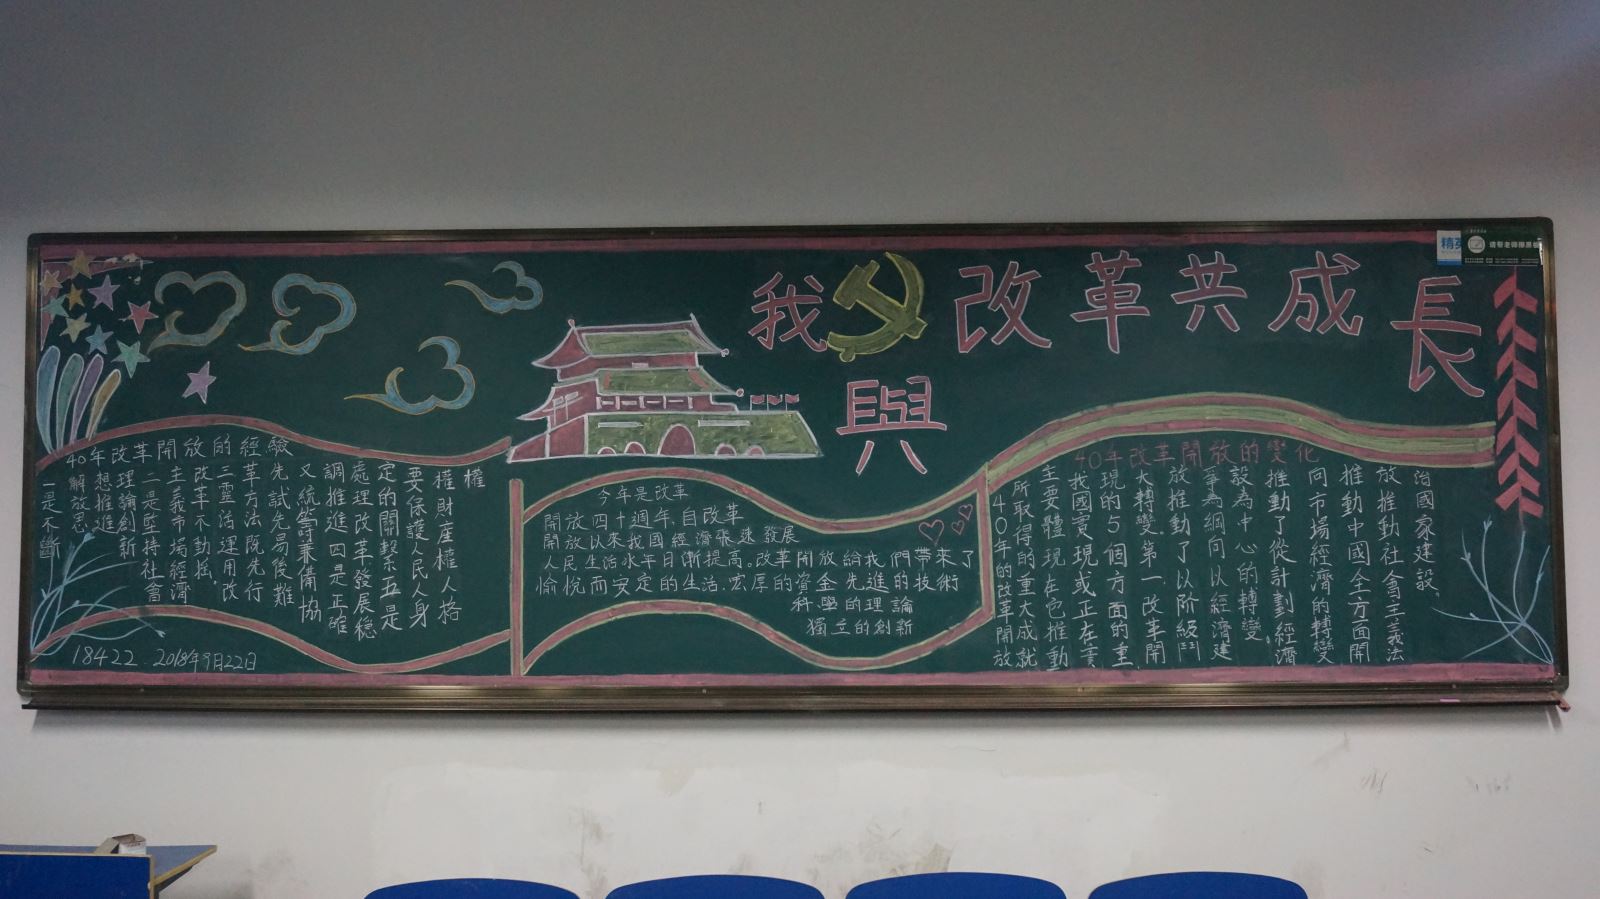 我與改革共成長
40年改革開放的經驗
一是不斷
解放思
想推進
理論創新
二是堅持社會
主義市場經濟
改革不動搖。
三靈活運用改
革方法既先行
先試先易後難
又統籌兼備協
調推進四是正確
處理改革發展穩
定的關繫五是
要保護人民人身
權財產權人格
權
18422 2018年9月22日
今年是改革
開放四十週年,自改革
開放以來我國經濟飛速發展
人民生活水平日漸提高。改革開放給我們帶來了
愉悅而安定的生活.宏厚的資金先進的技術
科學的理論
獨立的創新
40年改革開放的變化
40年的改革開放
所取得的重大成就
主要體現在它推動
我國實現或正在實
現的5個方面的重
大轉變第一.改革開
放推動了以阶級鬥
爭為綱向以經濟建
設為中心的轉變
推動了從計劃經濟
向市場經濟的轉變
推動中國全方面開
放推動社會主義法
治國家建設.
精英
请帮老师擦黑板